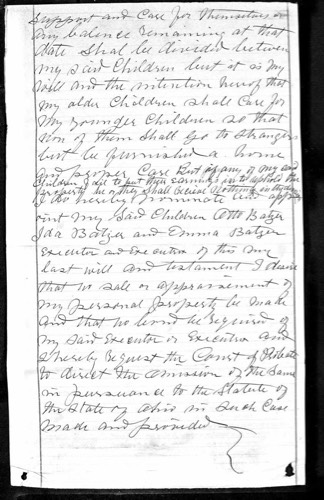 Support and Care for themselves or
any balance remaining at that
date Shal be divided between
my said Children but it is my
will and the intention hereof that
my older Children shall Care for
my younger Children so that
non of them Shall go to strangers
but be furnished a home
and proper Care But if any of my said
Children fail to put their earnings in to uphold the
property he or they shall receive Nothing
I do hereby nominate and appo
oint my Said Children Otto Batzer
Ida Batzer and Emma Batzer
Executor and Executrix of this my
last will and testament I desire
that no sale or appraisement of
my personal property be made
and that no bond be required of
my said Executor or Executrix and
I hereby Request the Court of Probate
to direct the omission of the Same
in pursuance to the Statute of
the State of Ohio in such Case
made and provided